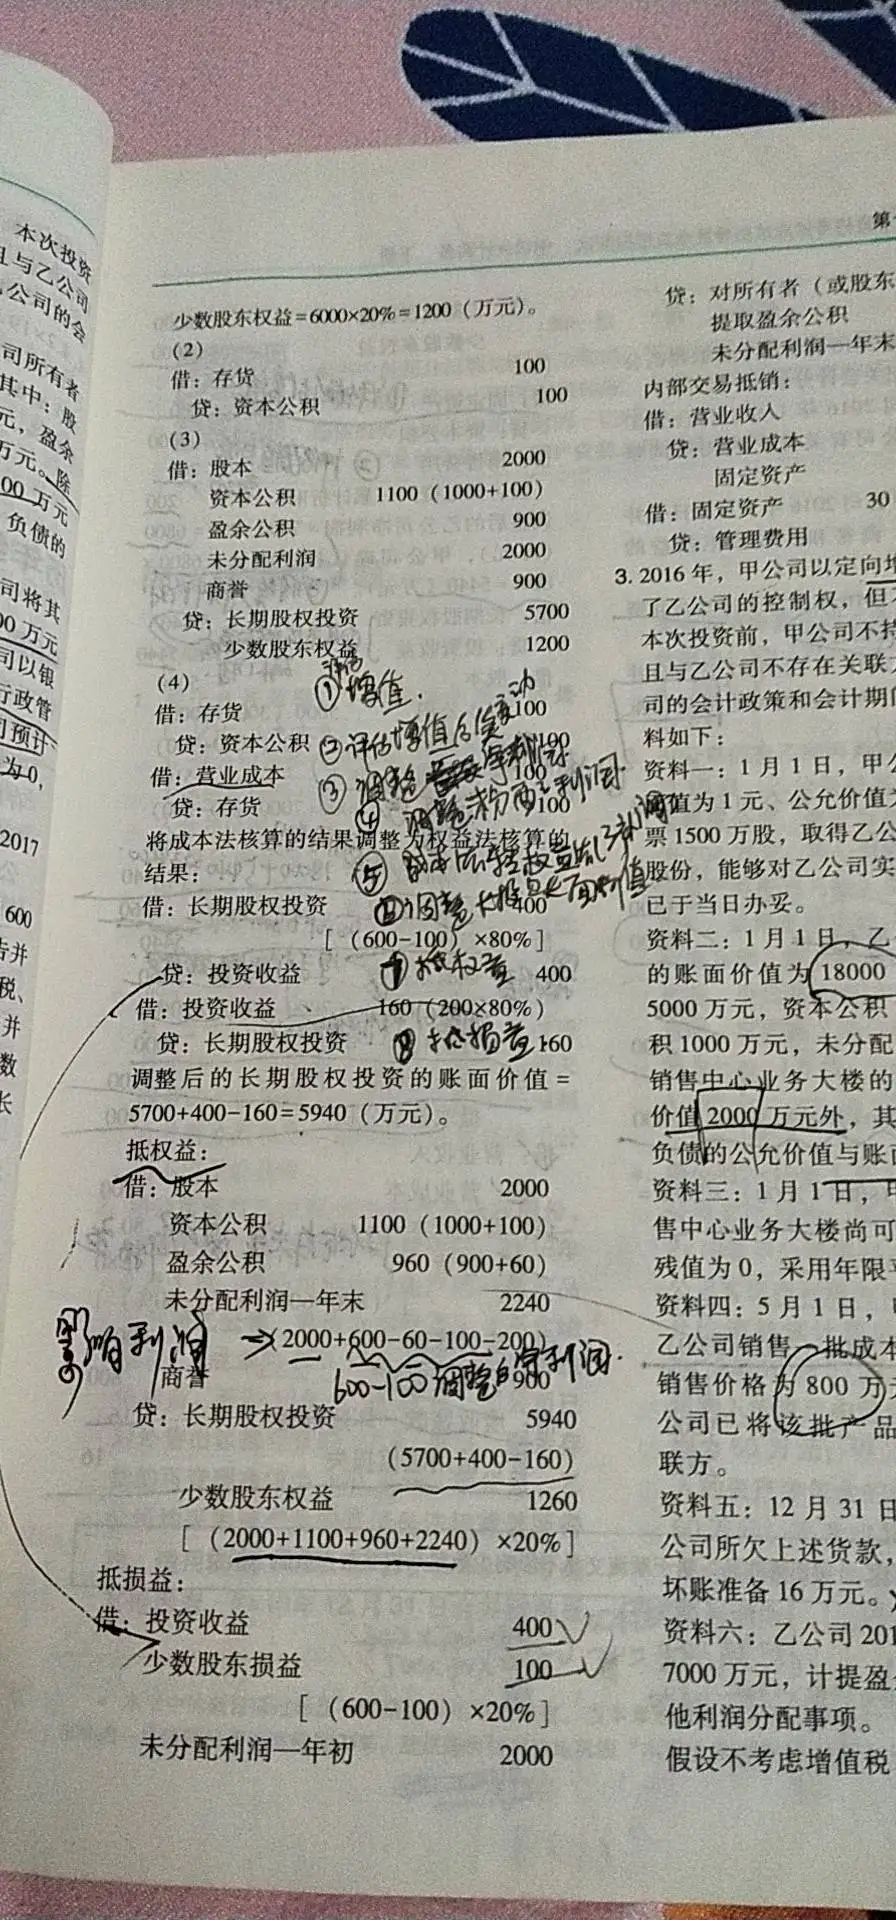 本次投资
且与乙公司
公司的会
司所有者
其中：股
元，盈余
万元。除
00万元
负债的
司将其
00万元
司以银
行政管
司预计
为0，
2017
600
告并
税、
并
数
长
少数股东权益=6000×20%=1200（万元）。
（2）
借：存货 100
贷：资本公积 100
（3）
借：股本 2000
资本公积 1100（1000+100）
盈余公积 900
未分配利润 2000
商誉 900
贷：长期股权投资 5700
少数股东权益 1200
（4） ①评估增值.
借：存货 100
贷：资本公积 100
②评估增值的变动
借：营业成本 100
③调整净利润
贷：存货 100
④调整利润
将成本法核算的结果调整为权益法核算的
结果：
⑤
借：长期股权投资 400
⑥调整长投账面价值
[（600-100）×80%]
贷：投资收益 400
⑦抵权益
借：投资收益 160（200×80%）
贷：长期股权投资 160
⑧抵损益
调整后的长期股权投资的账面价值=
5700+400-160=5940（万元）。
抵权益：
借：股本 2000
资本公积 1100（1000+100）
盈余公积 960（900+60）
未分配利润—年末 2240
影响利润 → （2000+600-60-100-200）
商誉 900
600-100调整的净利润.
贷：长期股权投资 5940
（5700+400-160）
少数股东权益 1260
[（2000+1100+960+2240）×20%]
抵损益：
借：投资收益 400
少数股东损益 100
[（600-100）×20%]
未分配利润—年初 2000
第
贷：对所有者（或股东
提取盈余公积
未分配利润—年末
内部交易抵销：
借：营业收入
贷：营业成本
固定资产
借：固定资产 30
贷：管理费用
3. 2016年，甲公司以定向增
了乙公司的控制权，但
本次投资前，甲公司不持
且与乙公司不存在关联方
司的会计政策和会计期间
料如下：
资料一：1月1日，甲公
面值为1元、公允价值为
票1500万股，取得乙公
股份，能够对乙公司实
已于当日办妥。
资料二：1月1日，乙
的账面价值为18000
5000万元，资本公积
积1000万元，未分配
销售中心业务大楼的
价值2000万元外，其
负债的公允价值与账面
资料三：1月1日，甲
售中心业务大楼尚可
残值为0，采用年限平
资料四：5月1日，甲
乙公司销售一批成本
销售价格为800万元
公司已将该批产品
联方。
资料五：12月31日
公司所欠上述货款，
坏账准备16万元。
资料六：乙公司201
7000万元，计提盈
他利润分配事项。
假设不考虑增值税